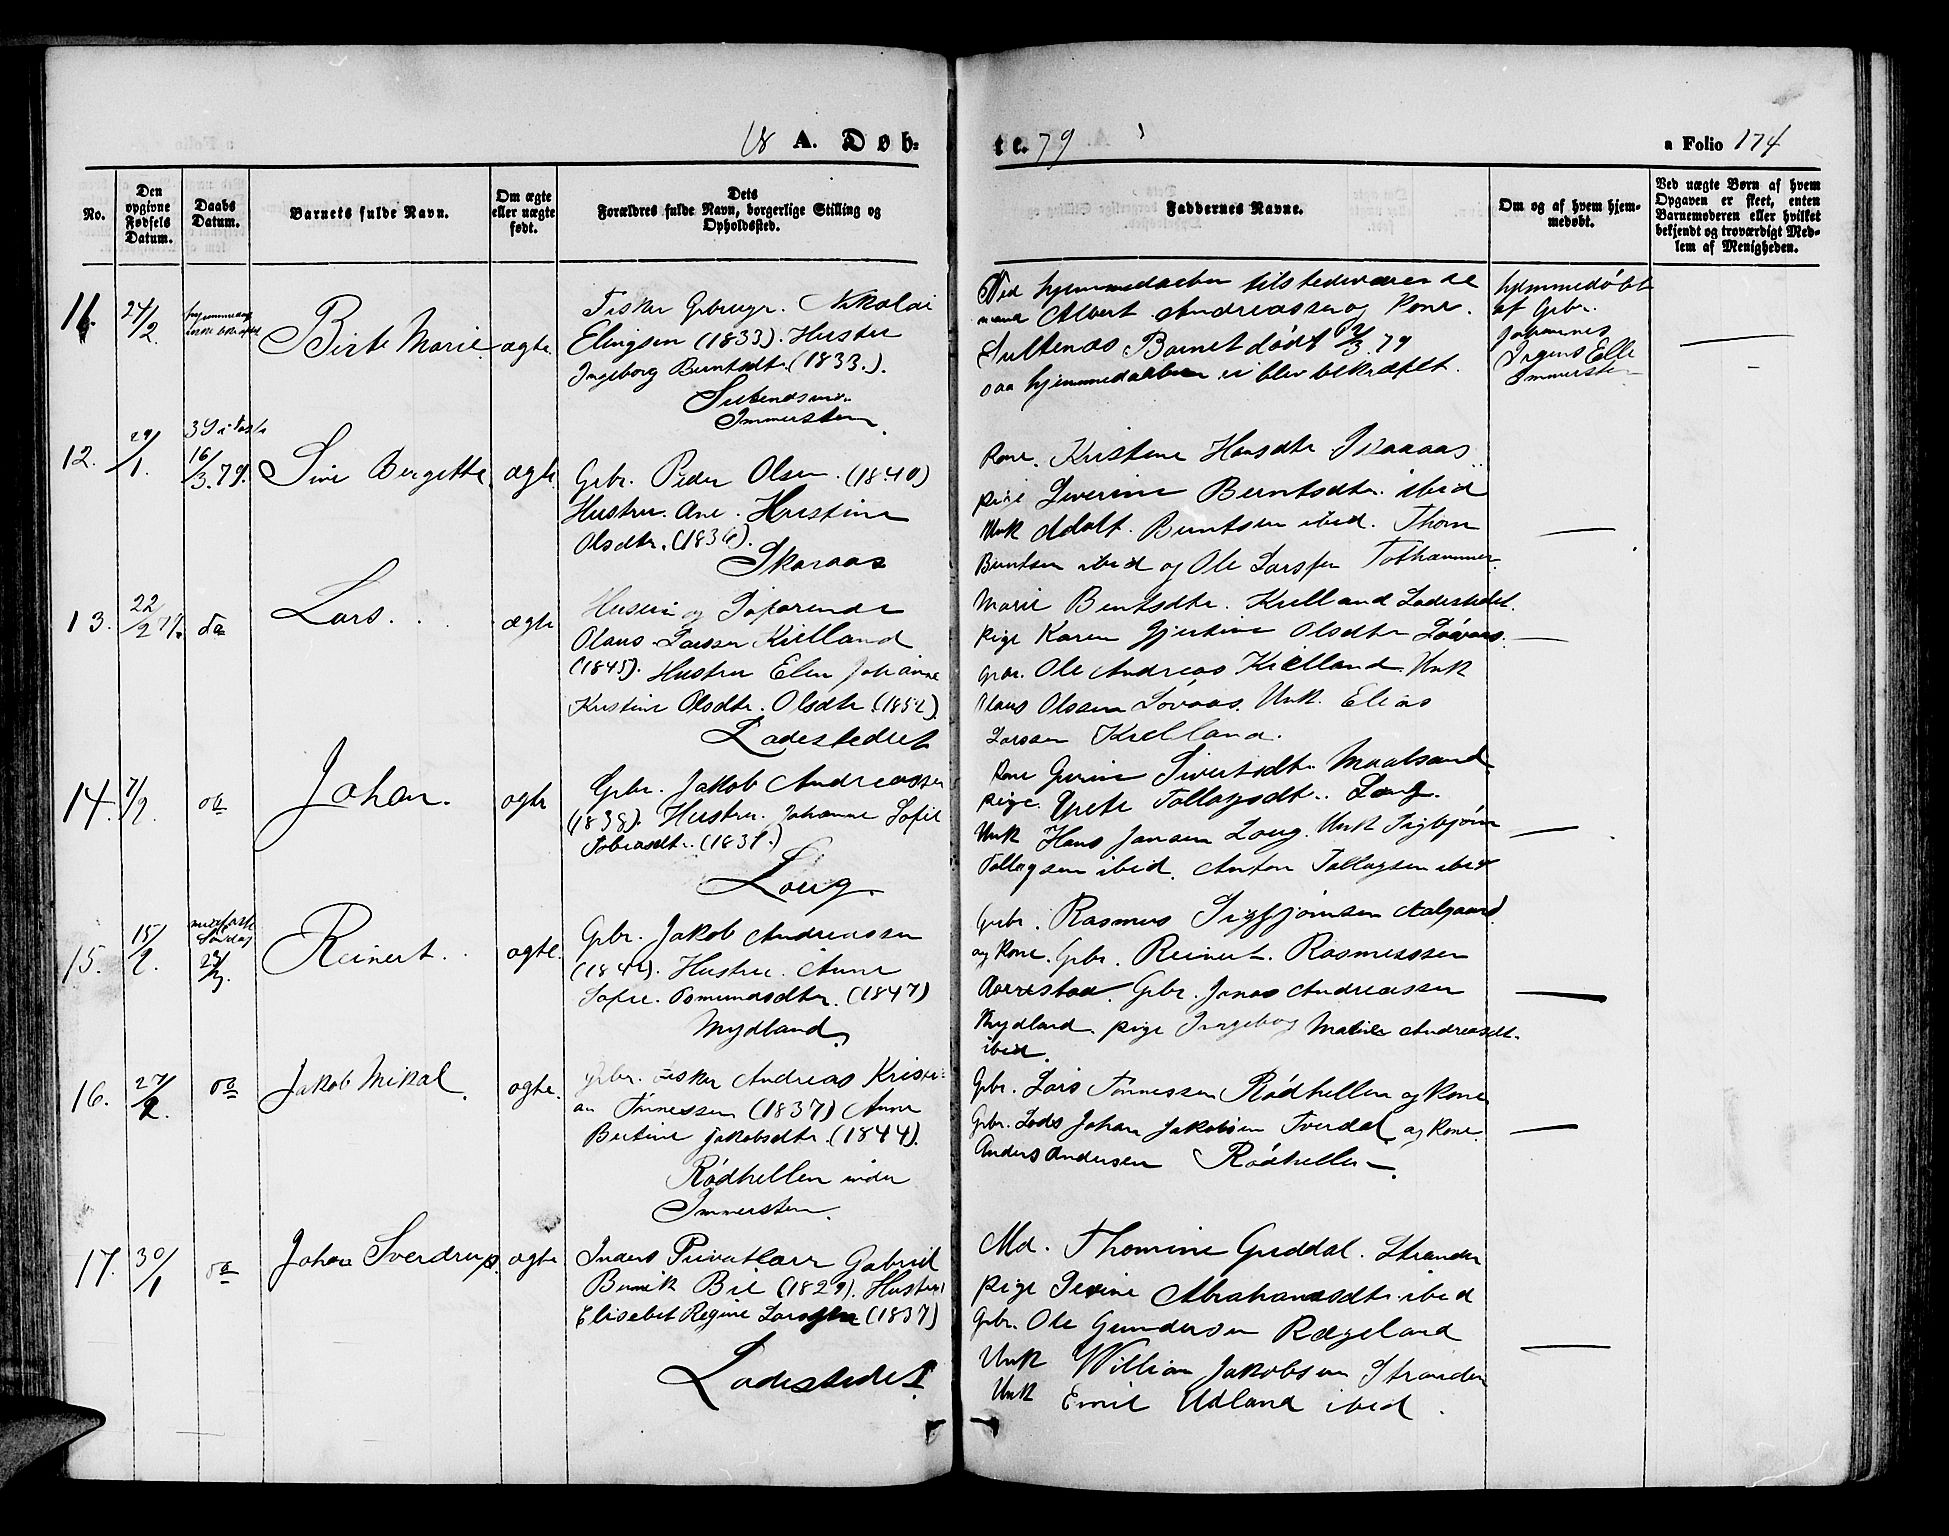 18 A. Døb-
te. 79
a Folio 174
No.
Den opgivne Fødsels Datum.
Daabs Datum.
Barnets fulde Navn.
Om ægte eller uægte født.
Dets Forældres fulde Navn, borgerlige Stilling og Opholdssted.
Faddernes Navne.
Om og af hvem hjemmedøbt.
Ved uægte Børn af hvem Opgaven er skeet, enten Barnemoderen eller hvilket bekjendt og troværdigt Medlem af Menigheden.
11. 24/2 Birte Marie ægte
Fisker Gbruger. Nikolai
Elingsen (1833). Hustru
Ingeborg Berntsdtr. (1833.).
Immersten
Ved hjemmedaaben tilstedeværende
Albert Andreassen og Kone.
Sultenæs Barnet død 79
saa hjemmedaaben ei blev bekræftet.
hjemmedøbt
af Gbr.
Johannes
Immersten
12. 29/1. 3 S i Faste
16/3.79. Sine Bergitte ægte
Gbr. Peder Olsen. (1840)
Hustru. Ane. Kristine
Olsdtr. (1836).
Skaraas
Kone. Kristine Hansdtr Skaraas
pige Severine Berntsdtr. ibid
Unk Adolf. Berntsen ibid. Thom
Berntsen ibid og Ole Larssen
13. 22/2 79. do Lars. ægte
Olaus Larssen Kielland
(1845). Hustru Elen Johanne
Kristine Olsdtr. Olsdtr. (1852).
Ladestedet
Marie Berntsdtr. Kielland Ladestedet.
pige Karen Gjertine Olsdtr Løvaas.
Gbr. Ole Andreas Kielland. Unk
Olaus Olsen Løvaas. Unk. Elias
Larsen Kielland.
14. 7/2. do Johan. ægte
Gbr. Jakob Andreassen
(1838). Hustru. Johanne Sofie
Tobiasdt.. (1837.)
Loug.
Kone Sivertsdt. Maalsand
pige. Grete Tollagsdt.. Loug.
Unk Hans Jansen Loug. Unk Sigbjørn
Tollagsen ibid. Anton Tollagsen ibid
15. 15/2. midfaste
Søndag
23/3. Reinert. ægte.
Gbr. Jakob Andreassen
Hustru. Anne
Sofie. Osmundsdtr. (1847)
Mydland
Gbr. Rasmus Sigbjørnsen Aalgaard
og Kone. Gbr. Reinert. Rasmussen
Aarrestad. Gbr. Jonas Andreassen
Mydland. pige Ingeborg Andreasdt.
ibid.
16. 27/2. do Jakob Mikal ægte.
Gbr. Fisker Andreas Kristi-
an Tønnessen (1837) Anne
Bertine Jakobsdtr. (1844).
Rødhellen under
Immersten.
Gbr. Lars Tønnessen Rødhellen og Kone
Gbr. Lods Johan Jakobsen Tverdal og Kone.
Anders Andersen Rødhellen.
17. 30/1 do Johan Sverdrup. ægte
Gabriel
Bernik Bie (1829). Hustru
Elisabet Regine Larssen (1837)
Ladestedet
Md. Thomine Geddal. Stranden
pige Severine Abrahamsdtr. ibid
Gbr. Ole Gundersen Rægeland
Unk William Jakobsen Stranden
Unk Emil Udland ibid.